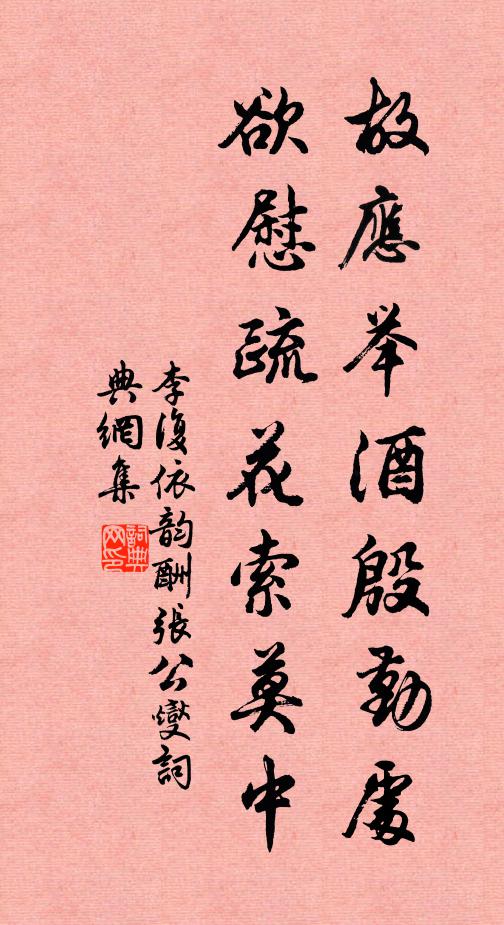 故應举酒殷勤處
欲慰疏花索莫中
李復依韵酬張公燮詞
典網集
詞典
网印